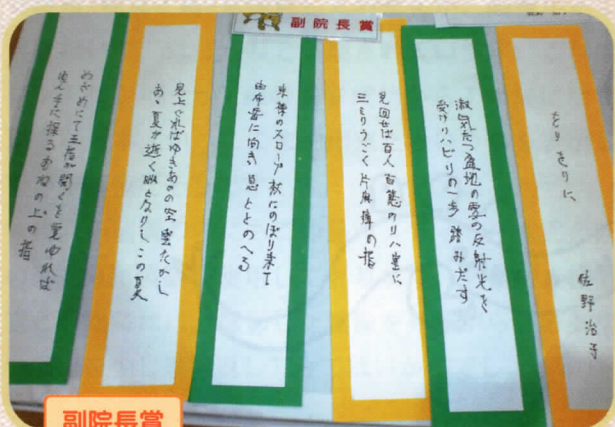 副院長賞
をりをりに、
佐野治子
盆地の雪の反射光を
受けリハビリの一歩踏みだす
見回せば百人百態のリハ室に
三ミリうごく片麻痺の指
棟のスロープ杖にのぼり来て
由布岳に向き息ととのへる
見上ぐればゆきあひの空雲たかし
あゝ夏が逝く となりしこの夏
めざめにて五指が開くを覚ゆれば
手に探るむねの上の指
副院長賞